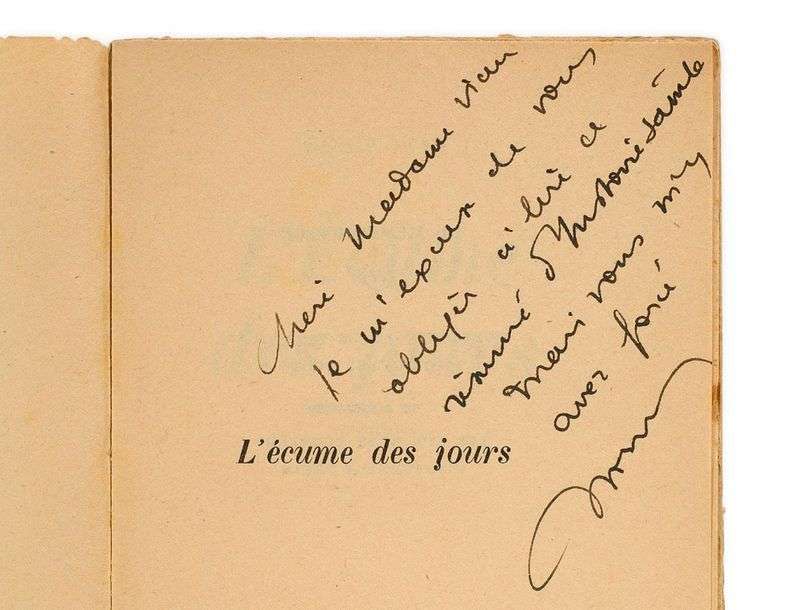 Chère Madame Vian
Je m'excuse de vous
obliger à lire ce
résumé d'histoire sainte
Mais vous m'y
avez forcé
L'écume des jours